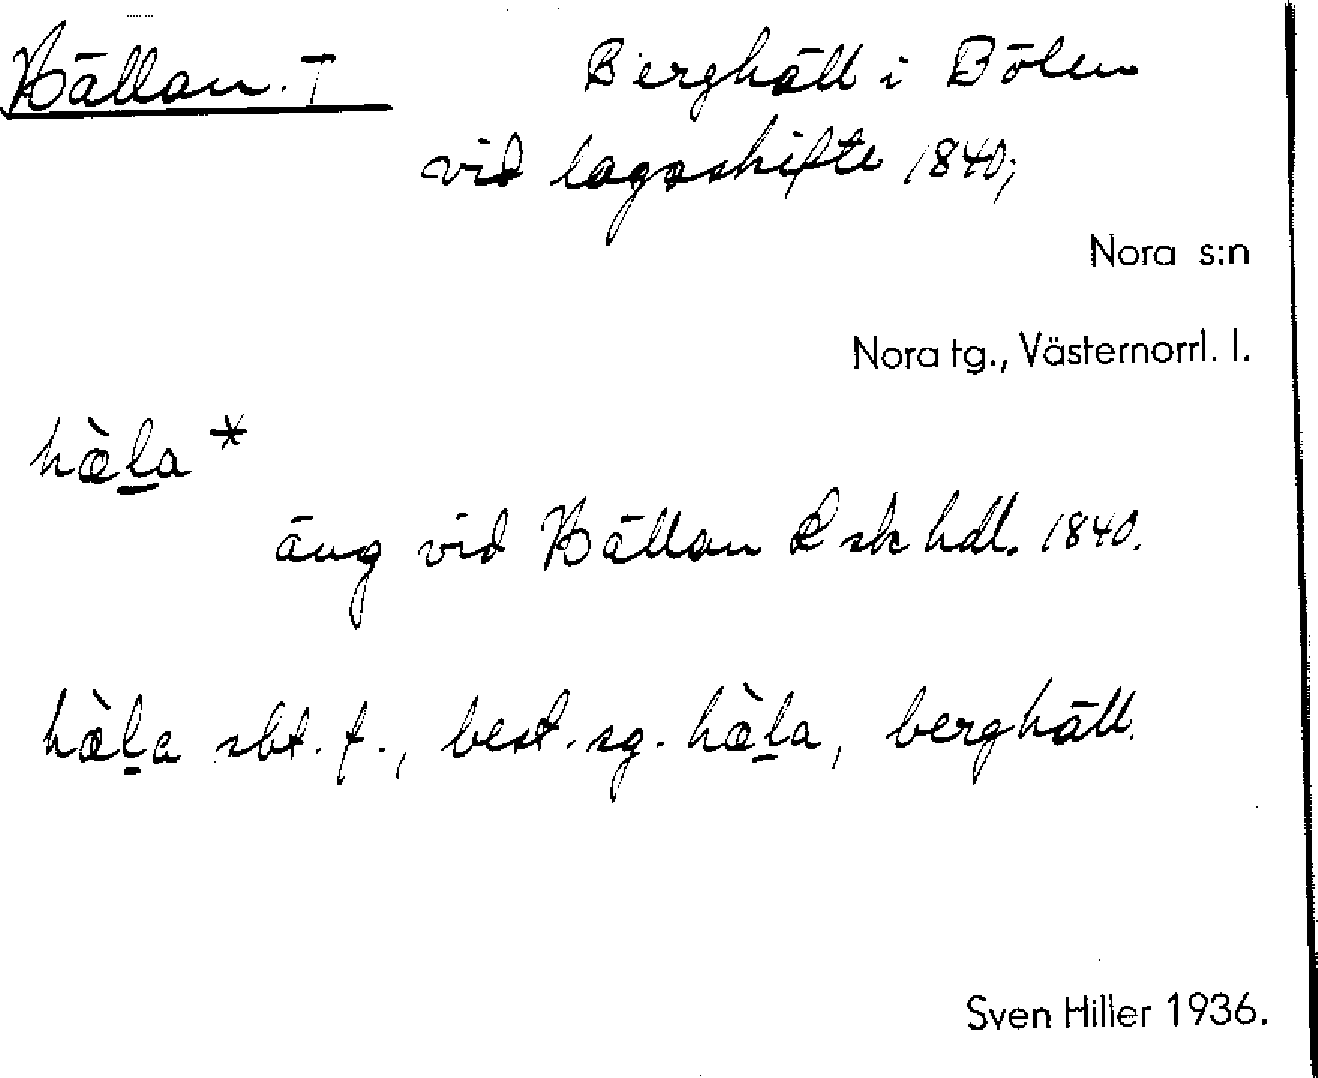 Hällan. T Berghäll i Bölen
vid lagaskifte 1840;
Nora s:n
Nora tg., Västernorrl. l.
hæ̀l̲a *
äng vid Hällan L sk hdl. 1840.
hæ̀l̲a sbt. f., best. sg. hæ̀l̲a, berghäll.
Sven Hiller 1936.